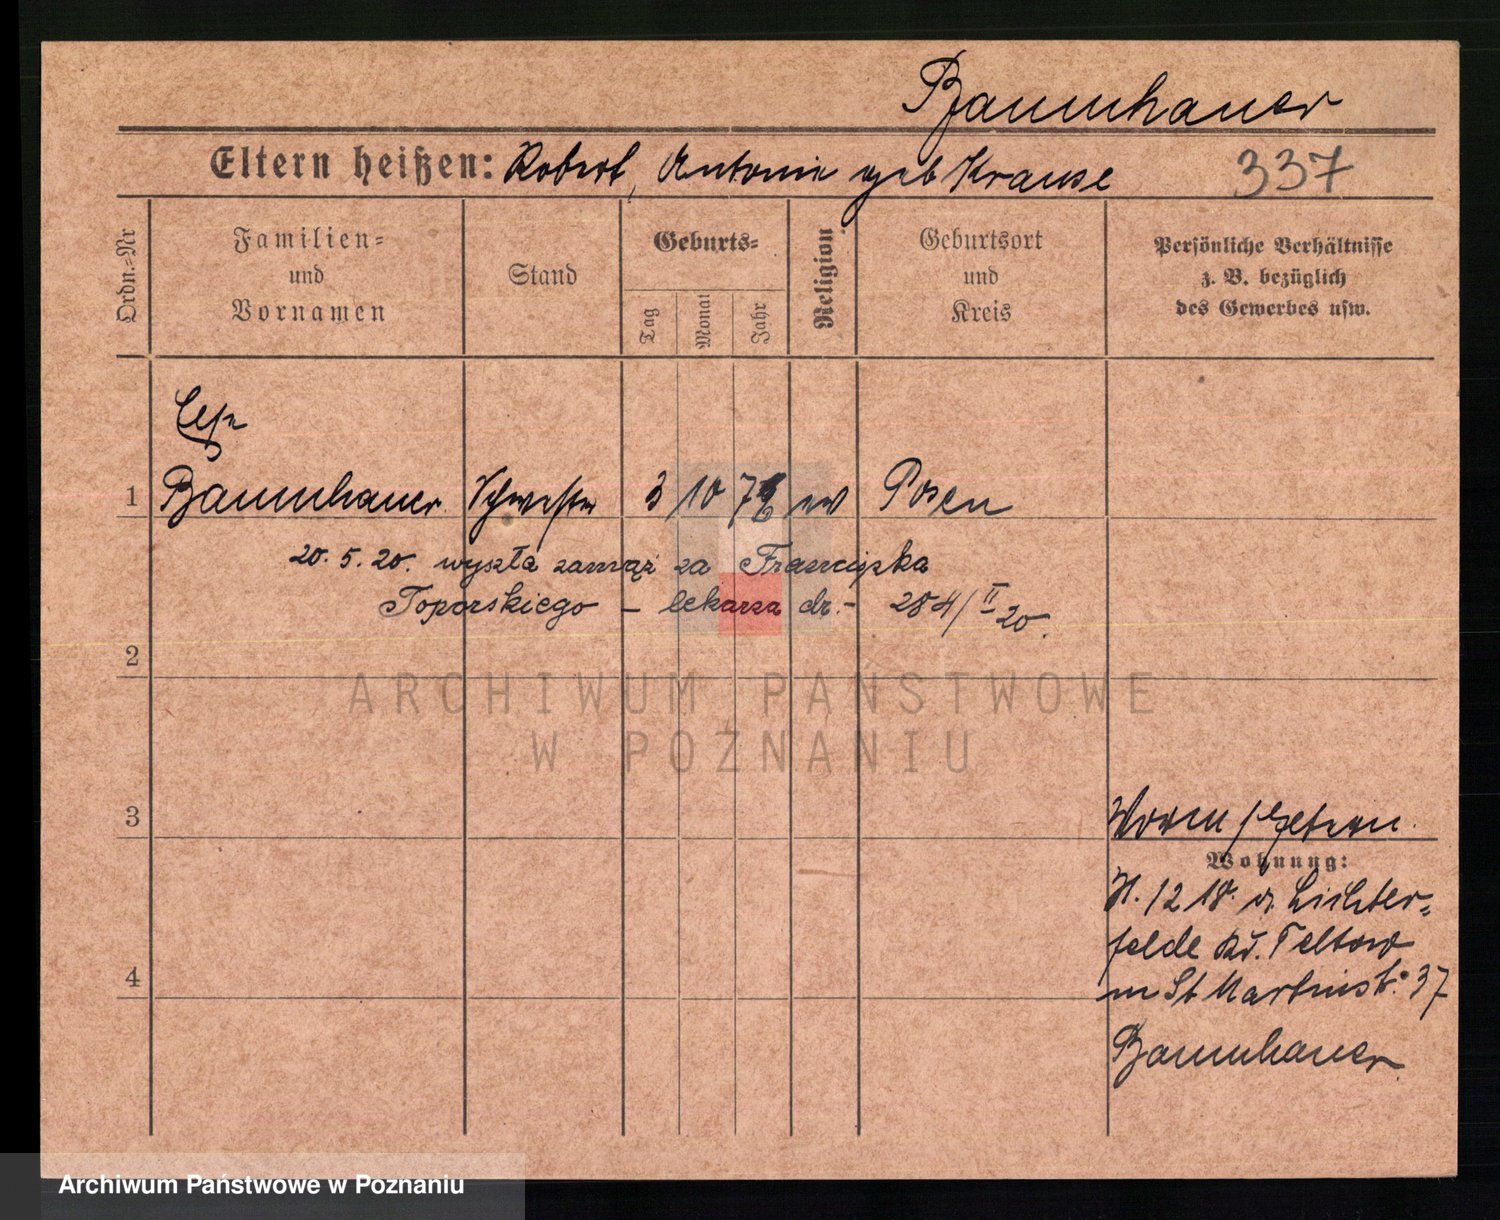 Baumhauer
Eltern heißen: Robert, Antonie geb Krause 337
Ordn.=Nr
Familien=
und
Vornamen
Stand
Geburts=
Tag
Monat
Jahr
Religion
Geburtsort
und
Kreis
Persönliche Verhältnisse
z. B. bezüglich
des Gewerbes usw.
1 Baumhauer Schwester 3 10 Posen
20. 5. 20. wyszła zamąż za Franciszka
Toporskiego – lekarza dr. – 284/II 20.
2
ARCHIWUM PAŃSTWOWE
W POZNANIU
3
Wohnung:
12 18. v. Lichter=
felde Kr. Teltow
n St Martinstr. 37
4
Baumhauer
Archiwum Państwowe w Poznaniu